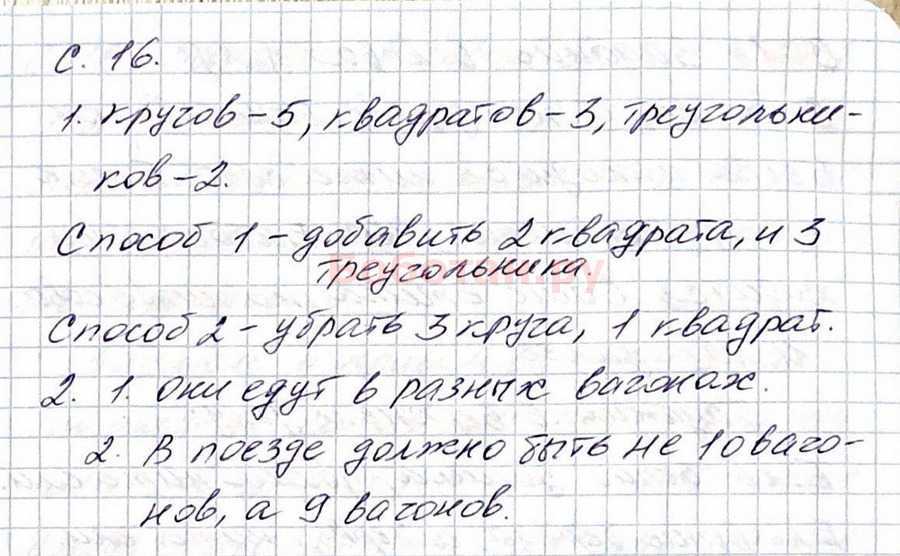 С. 16.
1. кругов – 5, квадратов – 3, треугольни-
ков – 2.
Способ 1 – добавить 2 квадрата, и 3
треугольника.
Способ 2 – убрать 3 круга, 1 квадрат.
2. 1. Они едут в разных вагонах.
2. В поезде должно быть не 10 ваго-
нов, а 9 вагонов.